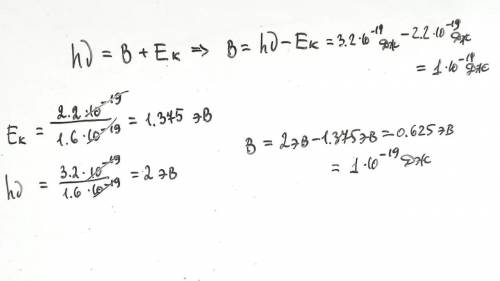 hν = B + Eк ⇒ B = hν − Eк = 3.2·10⁻¹⁹ Дж − 2.2·10⁻¹⁹ Дж
= 1·10⁻¹⁹ Дж
Eк = 2.2·10⁻¹⁹ / 1.6·10⁻¹⁹ = 1.375 эВ
hν = 3.2·10⁻¹⁹ / 1.6·10⁻¹⁹ = 2 эВ
B = 2эВ − 1.375эВ = 0.625эВ
= 1·10⁻¹⁹ Дж